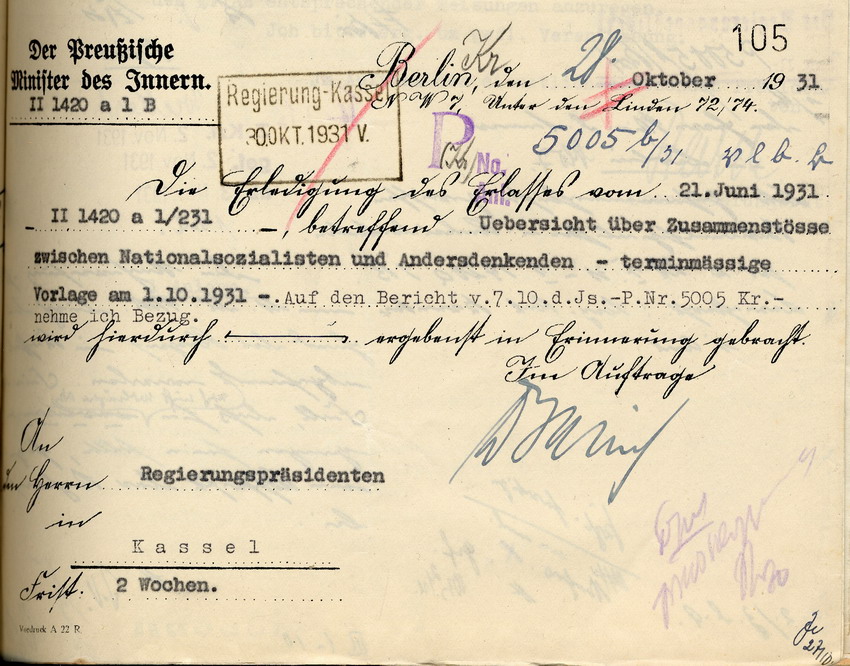 105
Der Preußische
Minister des Innern.
II 1420 a 1 B
Berlin, den 28. Oktober 1931
NW 7, Unter den Linden 72/74.
Regierung-Kassel
30.OKT.1931 V.
P
No.
5005 b/31
Die Erledigung des Erlasses vom 21.Juni 1931
- II 1420 a 1/231 -, betreffend Uebersicht über Zusammenstösse
zwischen Nationalsozialisten und Andersdenkenden - terminmässige
Vorlage am 1.10.1931 -. Auf den Bericht v.7.10.d.Js.-P.Nr.5005 Kr.-
nehme ich Bezug.
wird hierdurch ergebenst in Erinnerung gebracht.
Im Auftrage
An
Herrn Regierungspräsidenten
in
Kassel
Frist: 2 Wochen.
Vordruck A 22 R